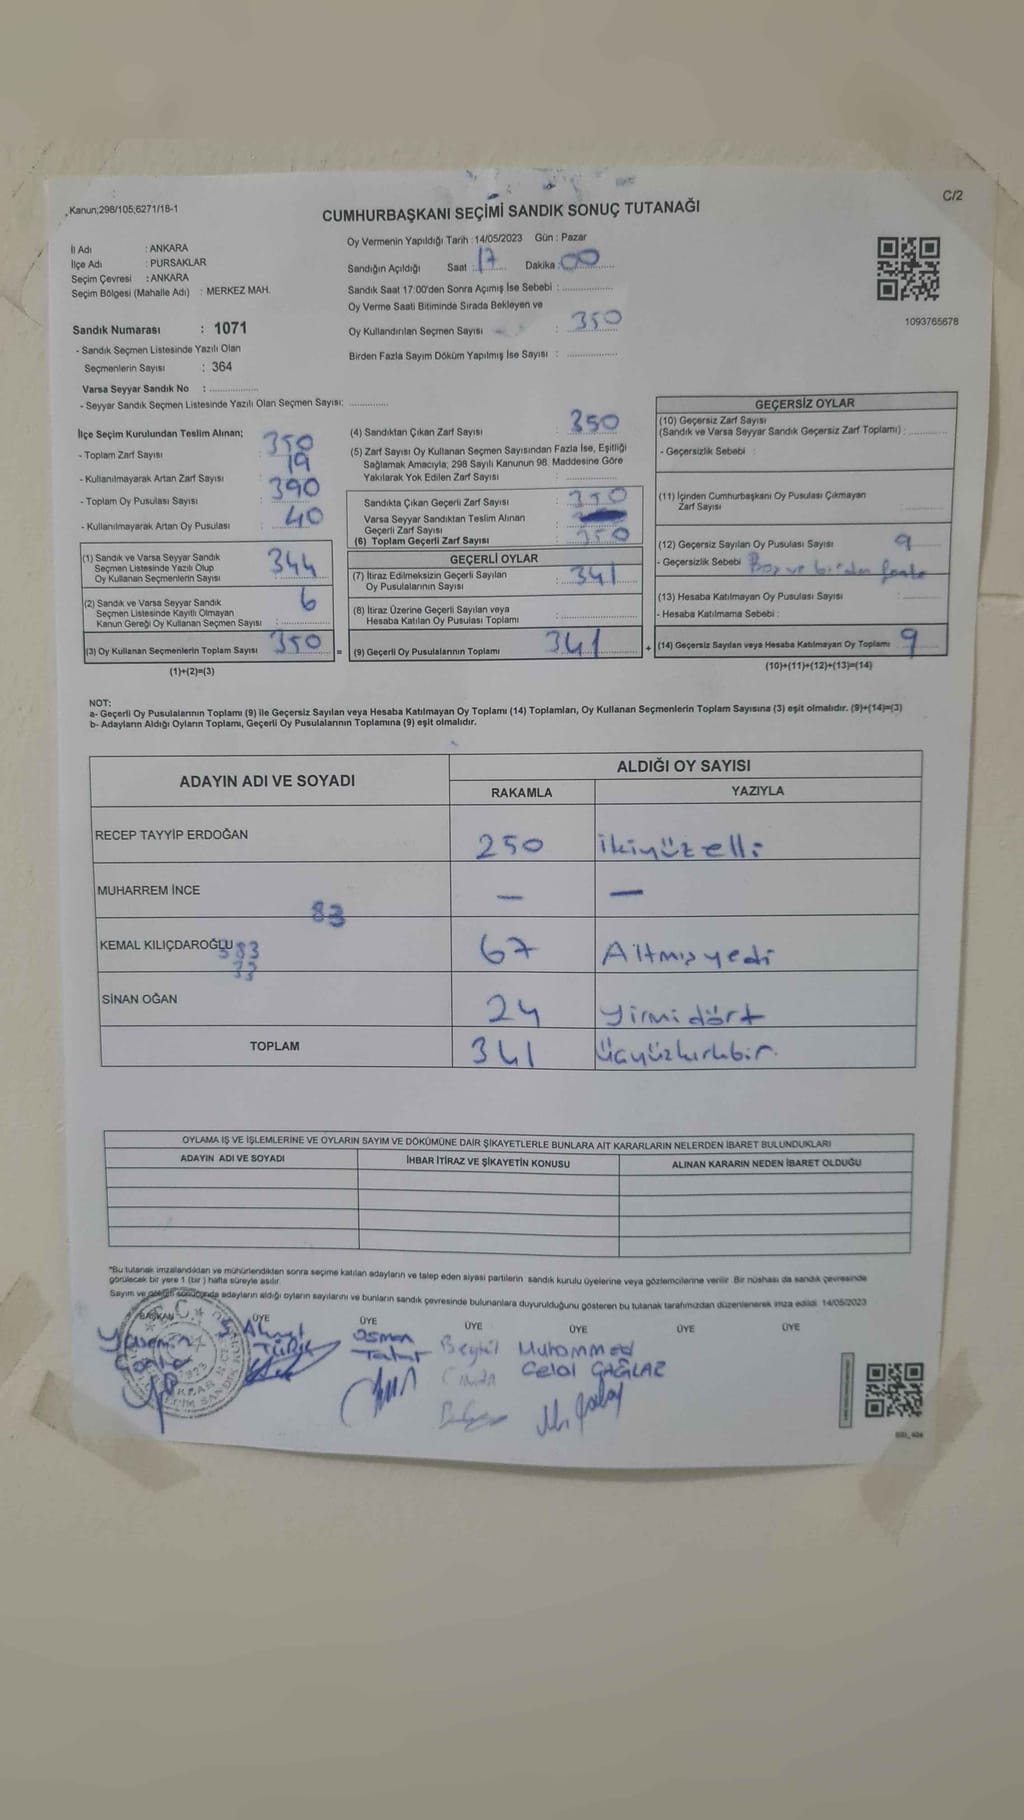 Kanun;298/105;6271/18-1
C/2
CUMHURBAŞKANI SEÇİMİ SANDIK SONUÇ TUTANAĞI
İl Adı : ANKARA
İlçe Adı : PURSAKLAR
Seçim Çevresi : ANKARA
Seçim Bölgesi (Mahalle Adı) : MERKEZ MAH.
Sandık Numarası : 1071
- Sandık Seçmen Listesinde Yazılı Olan
Seçmenlerin Sayısı : 364
Varsa Seyyar Sandık No : ................
- Seyyar Sandık Seçmen Listesinde Yazılı Olan Seçmen Sayısı: ............
Oy Vermenin Yapıldığı Tarih : 14/05/2023 Gün : Pazar
Sandığın Açıldığı Saat : 17 Dakika : 00
Sandık Saat 17:00'den Sonra Açımış İse Sebebi : ................
Oy Verme Saati Bitiminde Sırada Bekleyen ve
Oy Kullandırılan Seçmen Sayısı : 350
Birden Fazla Sayım Döküm Yapılmış İse Sayısı : ................
1093765678
İlçe Seçim Kurulundan Teslim Alınan;
- Toplam Zarf Sayısı : 350
- Kullanılmayarak Artan Zarf Sayısı : 19
- Toplam Oy Pusulası Sayısı : 390
- Kullanılmayarak Artan Oy Pusulası : 40
(1) Sandık ve Varsa Seyyar Sandık
Seçmen Listesinde Yazılı Olup
Oy Kullanan Seçmenlerin Sayısı : 344
(2) Sandık ve Varsa Seyyar Sandık
Seçmen Listesinde Kayıtlı Olmayan
Kanun Gereği Oy Kullanan Seçmen Sayısı : 6
(3) Oy Kullanan Seçmenlerin Toplam Sayısı : 350 =
(1)+(2)=(3)
(4) Sandıktan Çıkan Zarf Sayısı : 350
(5) Zarf Sayısı Oy Kullanan Seçmen Sayısından Fazla İse, Eşitliği
Sağlamak Amacıyla; 298 Sayılı Kanunun 98. Maddesine Göre
Yakılarak Yok Edilen Zarf Sayısı : ................
Sandıkta Çıkan Geçerli Zarf Sayısı : 350
Varsa Seyyar Sandıktan Teslim Alınan
Geçerli Zarf Sayısı :
(6) Toplam Geçerli Zarf Sayısı : 350
GEÇERLİ OYLAR
(7) İtiraz Edilmeksizin Geçerli Sayılan
Oy Pusulalarının Sayısı : 341
(8) İtiraz Üzerine Geçerli Sayılan veya
Hesaba Katılan Oy Pusulası Toplamı : ................
(9) Geçerli Oy Pusulalarının Toplamı 341 +
GEÇERSİZ OYLAR
(10) Geçersiz Zarf Sayısı
(Sandık ve Varsa Seyyar Sandık Geçersiz Zarf Toplamı) : ............
- Geçersizlik Sebebi :
(11) İçinden Cumhurbaşkanı Oy Pusulası Çıkmayan
Zarf Sayısı : ............
(12) Geçersiz Sayılan Oy Pusulası Sayısı 9
- Geçersizlik Sebebi Boş ve birden fazla
(13) Hesaba Katılmayan Oy Pusulası Sayısı : ............
- Hesaba Katılmama Sebebi :
(14) Geçersiz Sayılan veya Hesaba Katılmayan Oy Toplamı 9
(10)+(11)+(12)+(13)=(14)
NOT:
a- Geçerli Oy Pusulalarının Toplamı (9) ile Geçersiz Sayılan veya Hesaba Katılmayan Oy Toplamı (14) Toplamları, Oy Kullanan Seçmenlerin Toplam Sayısına (3) eşit olmalıdır. (9)+(14)=(3)
b- Adayların Aldığı Oyların Toplamı, Geçerli Oy Pusulalarının Toplamına (9) eşit olmalıdır.
ADAYIN ADI VE SOYADI ALDIĞI OY SAYISI
RAKAMLA YAZIYLA
RECEP TAYYİP ERDOĞAN 250 ikiyüzelli
MUHARREM İNCE — —
83
KEMAL KILIÇDAROĞLU 67 Altmışyedi
83
33
SİNAN OĞAN 24 yirmidört
TOPLAM 341 üçyüzkırkbir
OYLAMA İŞ VE İŞLEMLERİNE VE OYLARIN SAYIM VE DÖKÜMÜNE DAİR ŞİKAYETLERLE BUNLARA AİT KARARLARIN NELERDEN İBARET BULUNDUKLARI
ADAYIN ADI VE SOYADI İHBAR İTİRAZ VE ŞİKAYETİN KONUSU ALINAN KARARIN NEDEN İBARET OLDUĞU
*Bu tutanak imzalandıktan ve mühürlendikten sonra seçime katılan adayların ve talep eden siyasi partilerin sandık kurulu üyelerine veya gözlemcilerine verilir. Bir nüshası da sandık çevresinde
görülecek bir yere 1 (bir) hafta süreyle asılır.
Sayım ve döküm sonucunda adayların aldığı oyların sayılarını ve bunların sandık çevresinde bulunanlara duyurulduğunu gösteren bu tutanak tarafımızdan düzenlenerek imza edildi. 14/05/2023
BAŞKAN ÜYE ÜYE ÜYE ÜYE ÜYE ÜYE
Yasemin
Ahmet
Türk
Osman
Beytül
Muhammed
Celal ÇAĞLAZ
T.C.